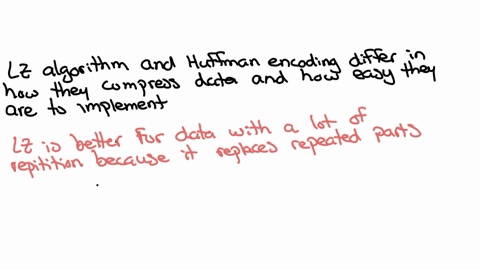 LZ algorithm and Huffman encoding differ in
how they compress data and how easy they
are to implement
LZ is better for data with a lot of
repitition because it replaces repeated parts